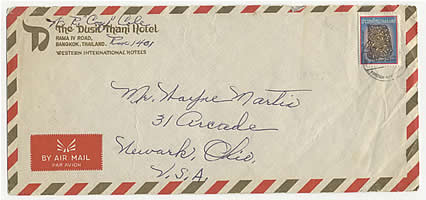 Cole
The Dusit Thani Hotel
RAMA IV ROAD,
BANGKOK, THAILAND. Rm. 1401
WESTERN INTERNATIONAL HOTELS
Mr. Wayne Martin
31 Arcade
Newark, Ohio.
U.S.A.
BY AIR MAIL
PAR AVION